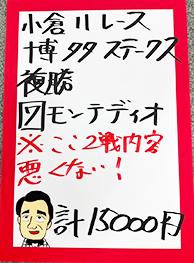 小倉11レース
博多Sテークス
複勝
図モンテディオ
※ここ2戦内容
悪くない!
計15000円